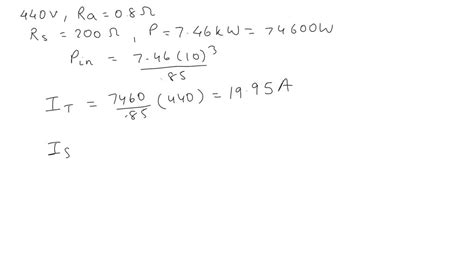 440V, Ra = 0.8Ω
Rs = 200 Ω, P = 7.46kW = 74600W
Pin = 7.46(10)³/.85
IT = 7460/.85 (440) = 19.95 A
IS